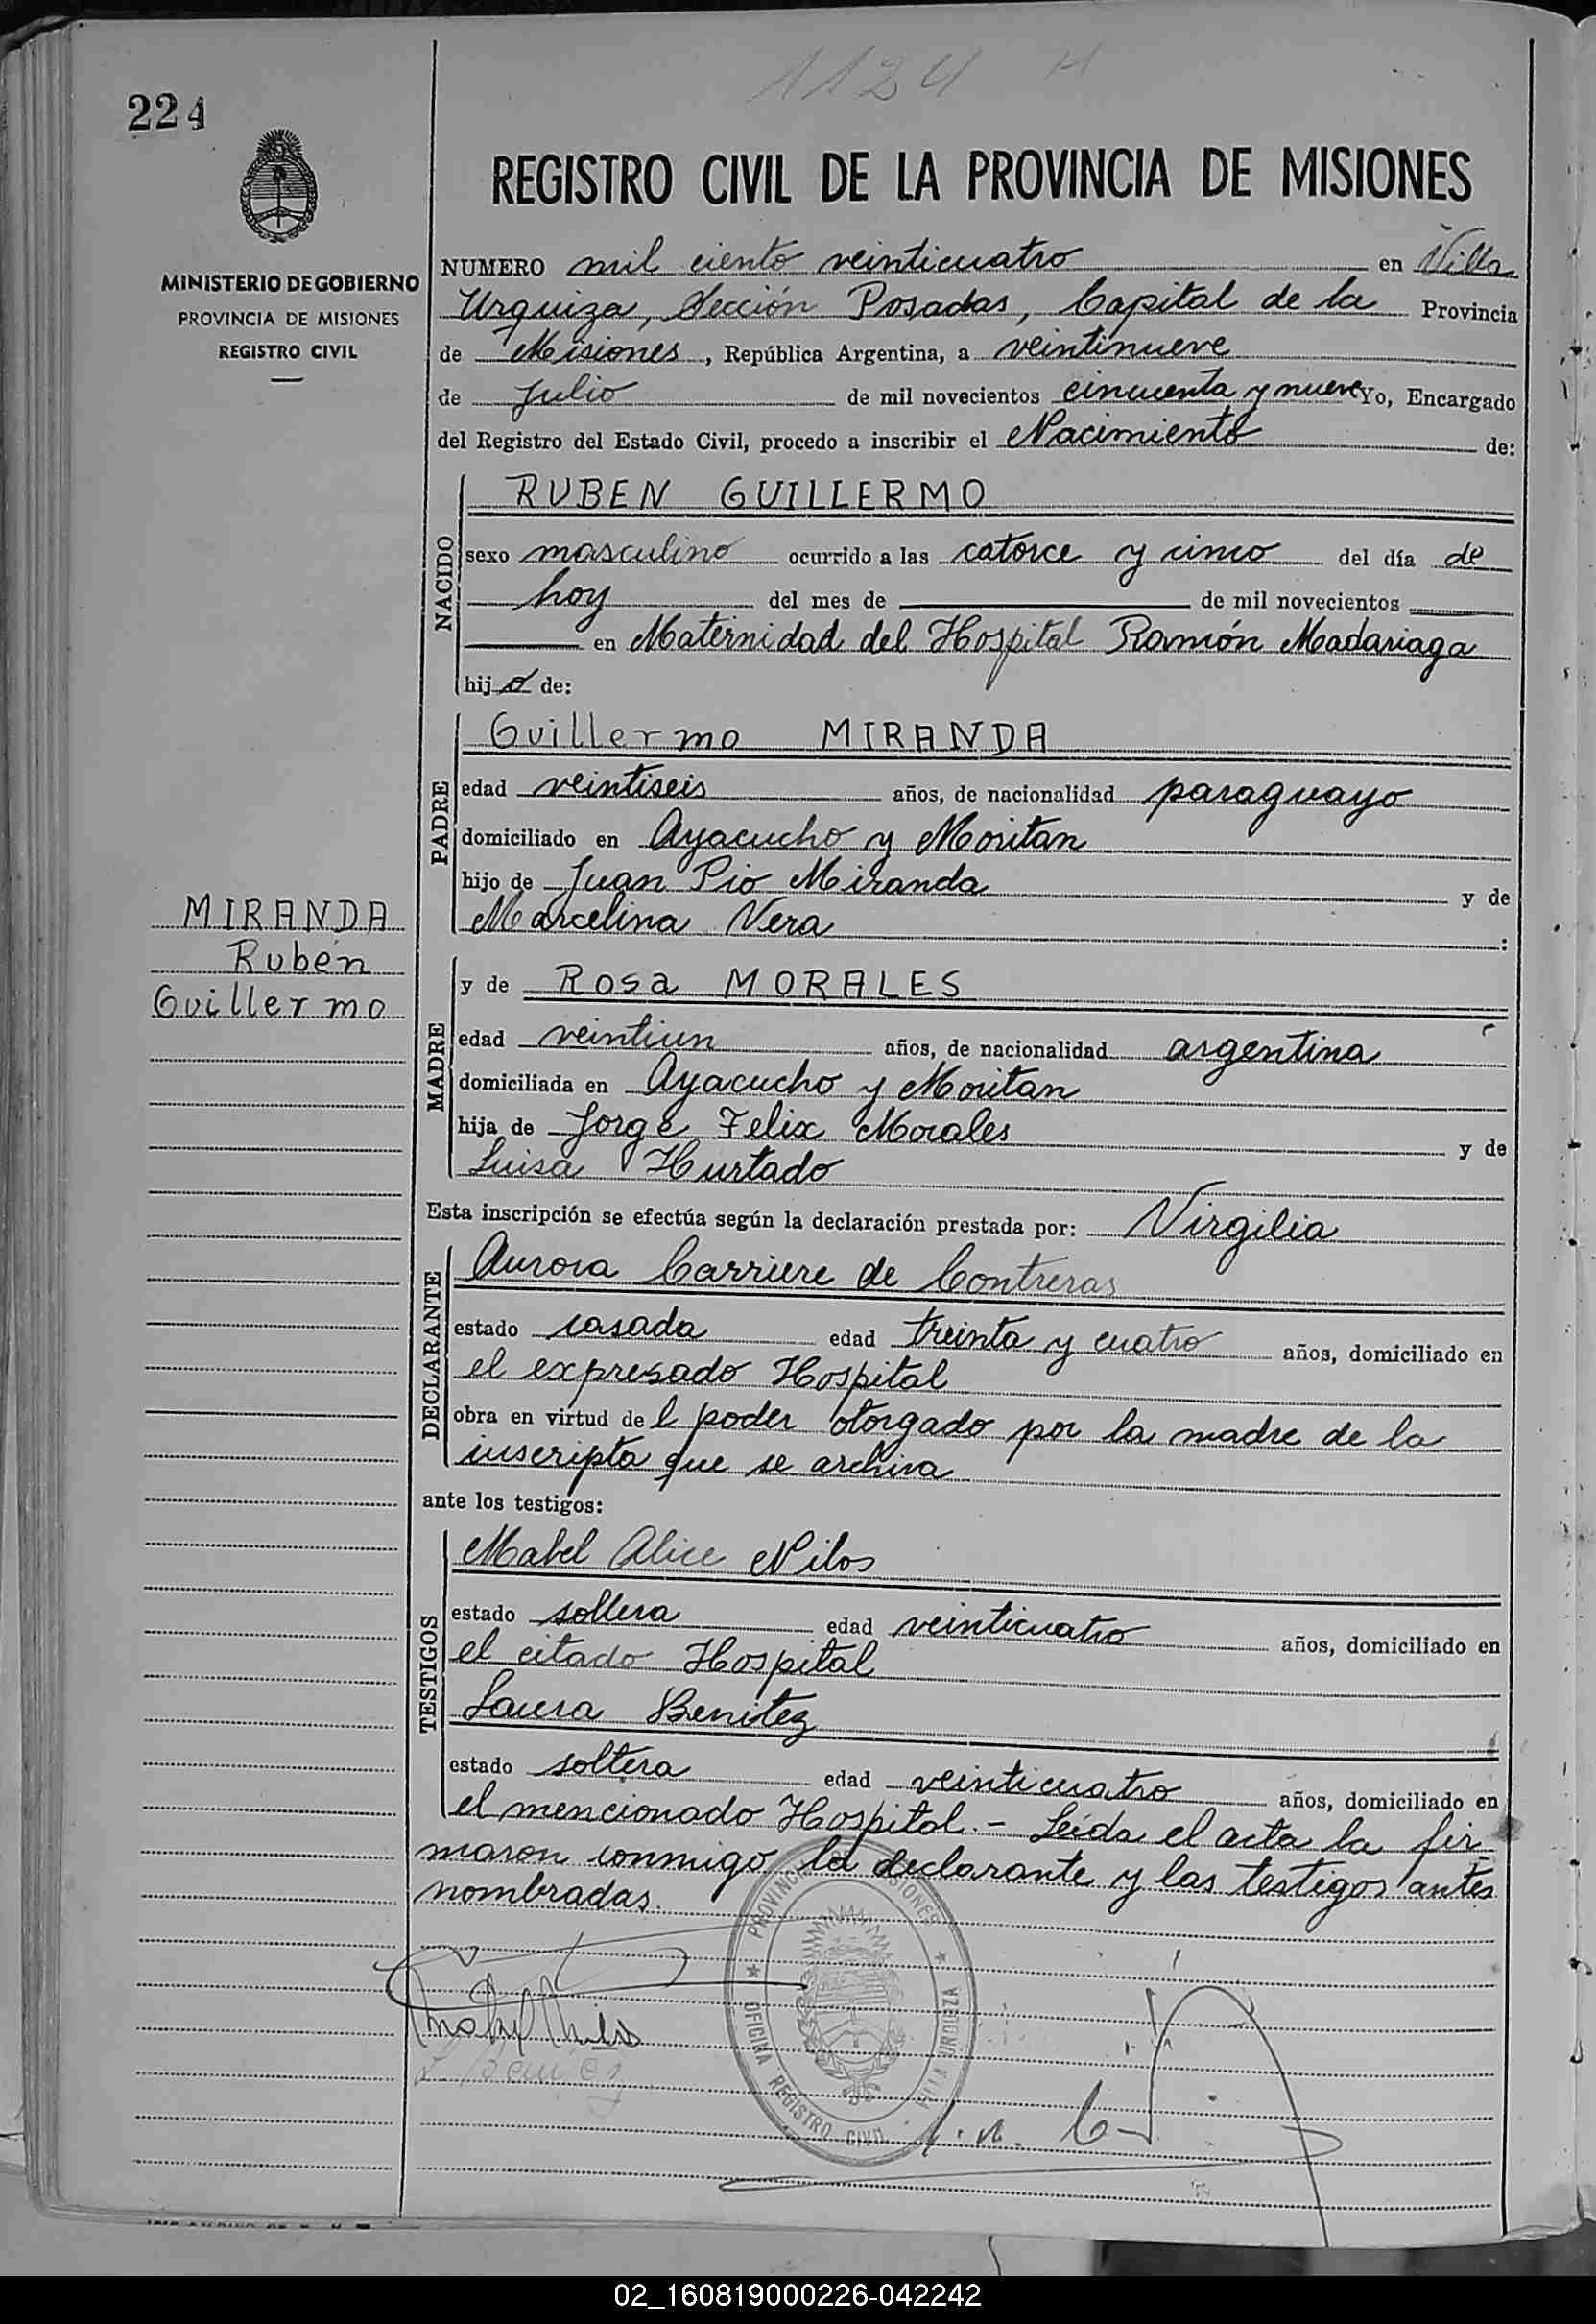 1124 H
224
REGISTRO CIVIL DE LA PROVINCIA DE MISIONES
MINISTERIO DE GOBIERNO
PROVINCIA DE MISIONES
REGISTRO CIVIL
NUMERO mil ciento veinticuatro en Villa
Urquiza, Sección Posadas, Capital de la Provincia
de Misiones, República Argentina, a veintinueve
de Julio de mil novecientos cincuenta y nueve Yo, Encargado
del Registro del Estado Civil, procedo a inscribir el Nacimiento de:
NACIDO
RUBEN GUILLERMO
sexo masculino ocurrido a las catorce y cinco del día de
hoy del mes de de mil novecientos
en Maternidad del Hospital Ramón Madariaga
hijo de:
PADRE
Guillermo MIRANDA
edad veintiseis años, de nacionalidad paraguayo
domiciliado en Ayacucho y Moritan
hijo de Juan Pio Miranda y de
Marcelina Vera :
MIRANDA
Rubén
Guillermo
MADRE
y de Rosa MORALES
edad veintiun años, de nacionalidad argentina
domiciliada en Ayacucho y Moritan
hija de Jorge Felix Morales y de
Luisa Hurtado
Esta inscripción se efectúa según la declaración prestada por: Virgilia
DECLARANTE
Aurora Carriere de Contreras
estado casada edad treinta y cuatro años, domiciliado en
el expresado Hospital
obra en virtud de l poder otorgado por la madre de la
inscripta que se archiva
ante los testigos:
TESTIGOS
Mabel Alice Nilos
estado soltera edad veinticuatro años, domiciliado en
el citado Hospital
Laura Benitez
estado soltera edad veinticuatro años, domiciliado en
el mencionado Hospital.- Leída el acta la fir-
maron conmigo la declarante y las testigos antes
nombradas.
PROVINCIA DE MISIONES
OFICINA REGISTRO CIVIL - VILLA URQUIZA
02_160819000226-042242